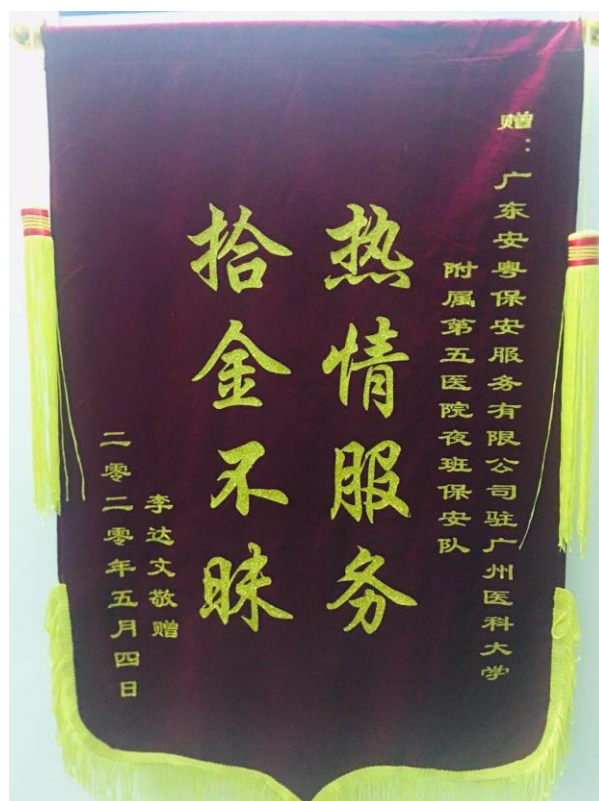 赠：广东安粤保安服务有限公司驻广州医科大学
附属第五医院夜班保安队
热情服务
拾金不昧
李达文敬赠
二零二零年五月四日